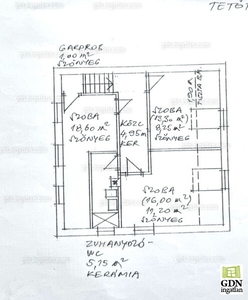 TETŐT
GARDRÓB
1,00 m²
SZŐNYEG
SZOBA
18,60 m²
SZŐNYEG
KÖZL
4,95 m²
KER
SZOBA
(13,50 m²)
8,25 m²
SZŐNYEG
SZOBA
(16,00 m²)
10,20 m²
SZŐNYEG
ZUHANYOZÓ-
WC
5,15 m²
KERÁMIA
GDN
ingatlan